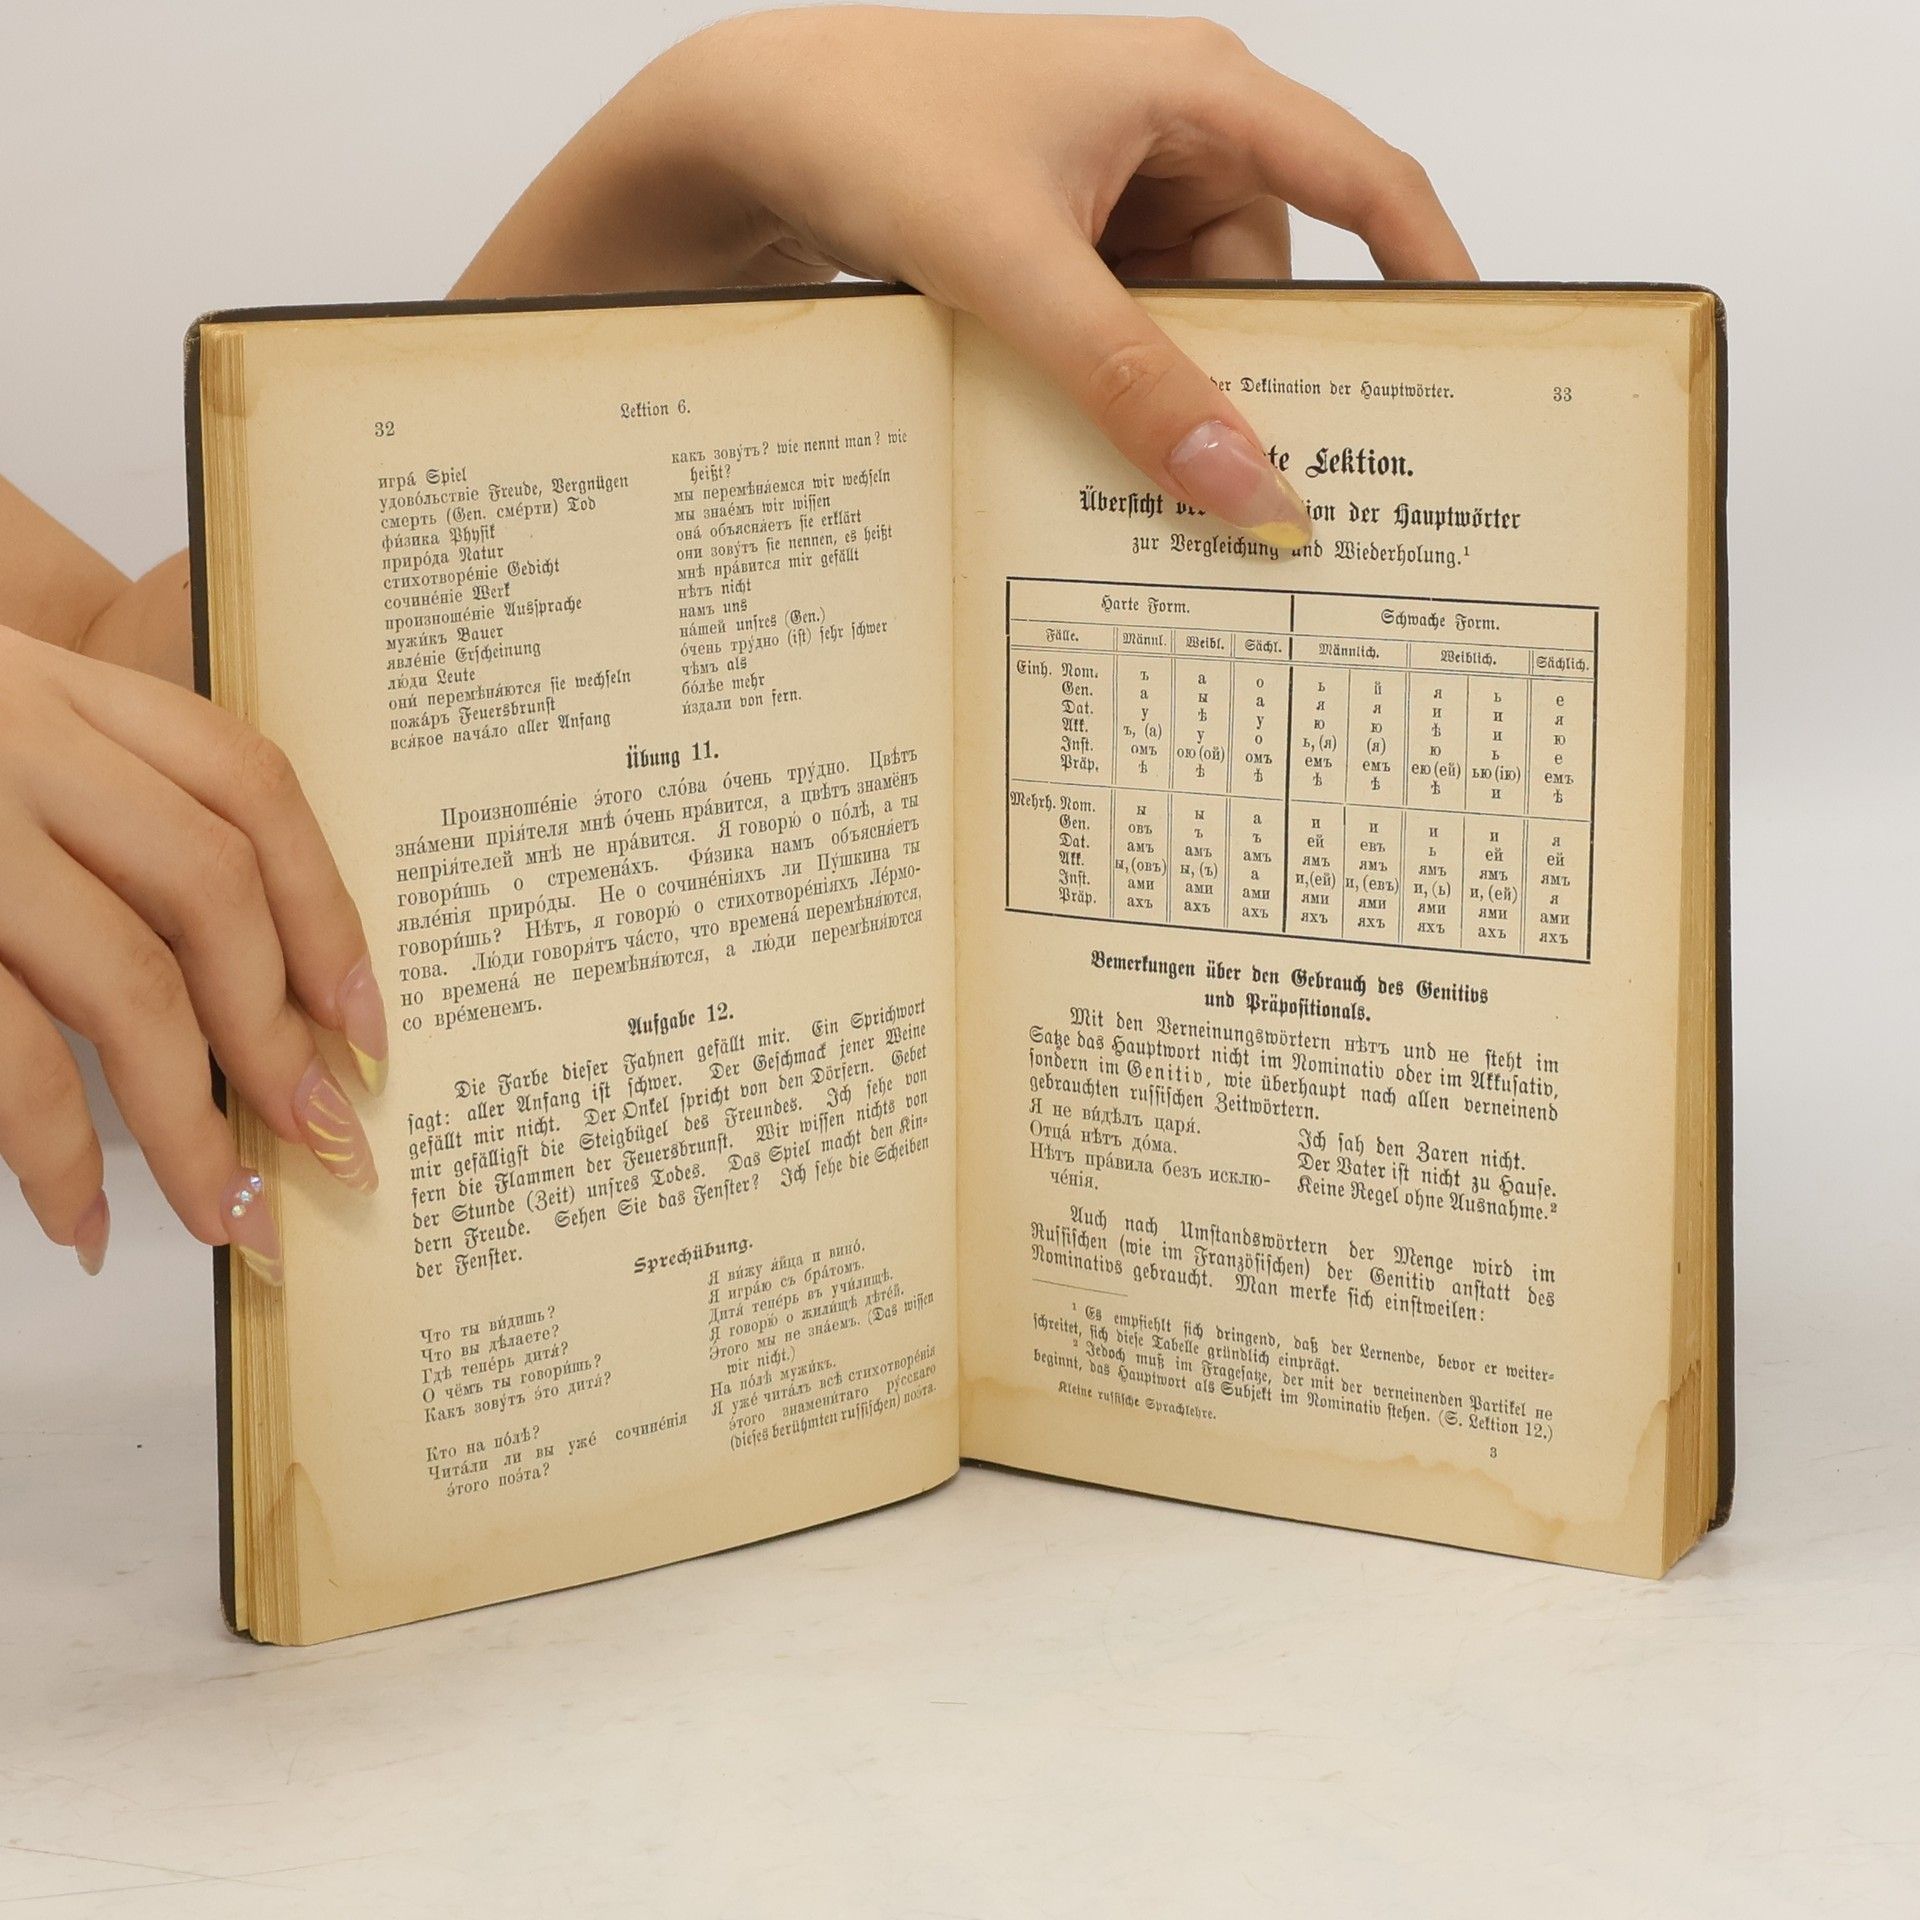 32
Lektion 6.
игра́ Spiel
удово́льствіе Freude, Vergnügen
смерть (Gen. сме́рти) Tod
фи́зика Physik
приро́да Natur
стихотворе́ніе Gedicht
сочине́ніе Werk
произноше́ніе Aussprache
мужи́къ Bauer
явле́ніе Erscheinung
лю́ди Leute
они́ перемѣня́ются sie wechseln
пожа́ръ Feuersbrunst
вся́кое нача́ло aller Anfang
какъ зову́тъ? wie nennt man? wie
heißt?
мы перемѣня́емся wir wechseln
мы зна́емъ wir wissen
она́ объясня́етъ sie erklärt
они зову́тъ sie nennen, es heißt
мнѣ нра́вится mir gefällt
нѣтъ nicht
намъ uns
на́шей unsres (Gen.)
о́чень тру́дно (ist) sehr schwer
чѣмъ als
бо́лѣе mehr
и́здали von fern.
Übung 11.
Произноше́ніе э́того сло́ва о́чень тру́дно. Цвѣтъ
зна́мени прія́теля мнѣ о́чень нра́вится, а цвѣтъ знамёнъ
непрія́телей мнѣ не нра́вится. Я говорю́ о по́лѣ, а ты
говори́шь о стремена́хъ. Фи́зика намъ объясня́етъ
явле́нія приро́ды. Не о сочине́ніяхъ ли Пу́шкина ты
говори́шь? Нѣтъ, я говорю́ о стихотворе́ніяхъ Ле́рмо-
това. Лю́ди говоря́тъ ча́сто, что времена́ перемѣня́ются,
но времена́ не перемѣня́ются, а лю́ди перемѣня́ются
со вре́менемъ.
Aufgabe 12.
Die Farbe dieser Fahnen gefällt mir. Ein Sprichwort
sagt: aller Anfang ist schwer. Der Geschmack jener Weine
gefällt mir nicht. Der Onkel spricht von den Dörfern. Gebet
mir gefälligst die Steigbügel des Freundes. Ich sehe von
fern die Flammen der Feuersbrunst. Wir wissen nichts von
der Stunde (Zeit) unsres Todes. Das Spiel macht den Kin-
dern Freude. Sehen Sie das Fenster? Ich sehe die Scheiben
der Fenster.
Sprechübung.
Что ты ви́дишь?
Что вы дѣ́лаете?
Гдѣ тепе́рь дитя́?
О чёмъ ты говори́шь?
Какъ зову́тъ э́то дитя́?
Кто на по́лѣ?
Чита́ли ли вы уже́ сочине́нія
э́того поэ́та?
Я ви́жу я́йца и вино́.
Я игра́ю съ бра́томъ.
Дитя́ тепе́рь въ учи́лищѣ.
Я говорю́ о жили́щѣ дѣте́й.
Э́того мы не зна́емъ. (Das wissen
wir nicht.)
На по́лѣ мужи́къ.
Я уже́ чита́лъ всѣ стихотворе́нія
э́того знамени́таго ру́сскаго
(dieses berühmten russischen) поэ́та.
der Deklination der Hauptwörter.
33
Lektion.
Übersicht der Hauptwörter
zur Vergleichung und Wiederholung.¹
Harte Form. Schwache Form.
Fälle. Männl. Weibl. Sächl. Männlich. Weiblich. Sächlich.
Einh. Nom. ъ а о ь й я ь е
Gen. а ы а я я и и я
Dat. у ѣ у ю ю ѣ и ю
Akk. ъ, (а) у о ь, (я) (я) ю ь е
Inst. омъ ою (ой) омъ емъ емъ ею (ей) ью (ію) емъ
Präp. ѣ ѣ ѣ ѣ ѣ ѣ и ѣ
Mehrh. Nom. ы ы а и и и и я
Gen. овъ ъ ъ ей евъ ь ей ей
Dat. амъ амъ амъ ямъ ямъ ямъ ямъ ямъ
Akk. ы, (овъ) ы, (ъ) а и, (ей) и, (евъ) и, (ь) и, (ей) я
Inst. ами ами ами ями ями ями ями ами
Präp. ахъ ахъ ахъ яхъ яхъ яхъ ахъ яхъ
Bemerkungen über den Gebrauch des Genitivs
und Präpositionals.
Mit den Verneinungswörtern нѣтъ und не steht im
Satze das Hauptwort nicht im Nominativ oder im Akkusativ,
sondern im Genitiv, wie überhaupt nach allen verneinend
gebrauchten russischen Zeitwörtern.
Я не ви́дѣлъ царя́. Ich sah den Zaren nicht.
Отца́ нѣтъ до́ма. Der Vater ist nicht zu Hause.
Нѣтъ пра́вила безъ исклю- Keine Regel ohne Ausnahme.²
че́нія.
Auch nach Umstandswörtern der Menge wird im
Russischen (wie im Französischen) der Genitiv anstatt des
Nominativs gebraucht. Man merke sich einstweilen:
¹ Es empfiehlt sich dringend, daß der Lernende, bevor er weiter-
schreitet, sich diese Tabelle gründlich einprägt.
² Jedoch muß im Fragesatze, der mit der verneinenden Partikel не
beginnt, das Hauptwort als Subjekt im Nominativ stehen. (S. Lektion 12.)
Kleine russische Sprachlehre.
3